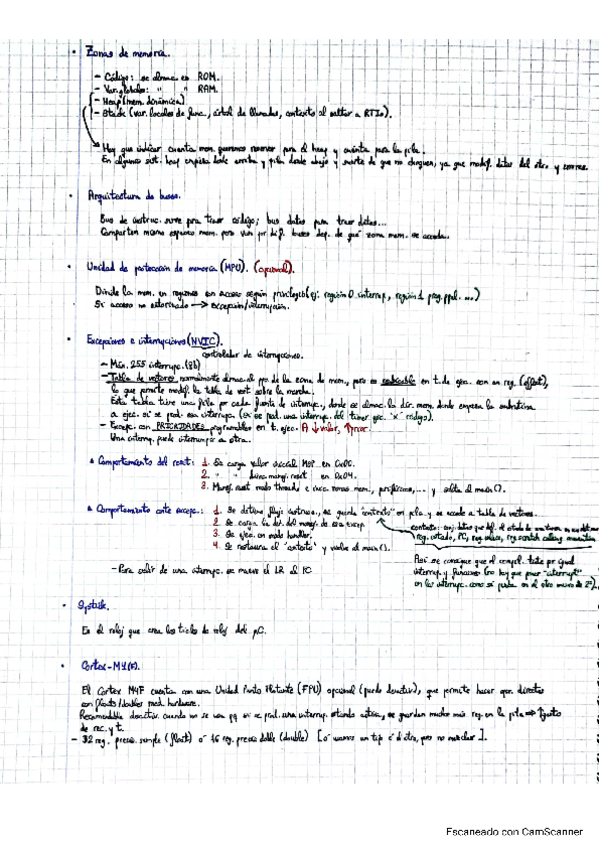 • Zonas de memoria.
- Código: se almac. en ROM.
- Var. globales: " " RAM.
- Heap (mem. dinámica)
- Stack (var. locales de func., árbol de llamadas, contexto al saltar a RTIs).
Hay que indicar cuanta mem. queremos reservar para el heap y cuánta para la pila.
En algunos sist. heap empieza desde arriba y pila desde abajo y de que no choquen, ya que modif. datos del otro y
• Arquitectura de buses.
Bus de instruc. sirve para traer código; bus datos para traer datos...
Comparten mismo espacio mem. pero van por dif. buses dep. de qué zona mem. se acceda.
• Unidad de protección de memoria (MPU). (opcional).
Divide la mem. en regiones con acceso según privilegio (ej: región 0 interrup, región 1 prog. ppal. ...)
Si acceso no autorizado → excepción/interrupción.
• Excepciones e interrupciones (NVIC).
controlador de interrupciones.
- Máx. 255 interrupc. (8b)
- Tabla de vectores normalmente almac. al ppo. de la zona de mem., pero es reubicable en t. de ejec. con un reg. (offset),
lo que permite modif. la tabla de vect. sobre la marcha.
Esta tabla tiene una fila por cada fuente de interrupc., donde se almac. la dir. mem. donde empieza la subrutina
a ejec. si se prod. esa interrup. (ej: se prod. una interrup. del timer ejec. "x" código).
- Excepc. con PRIORIDADES programables en t. ejec. A ↓ valor, ↑ prior.
Una interrup. puede interrumpir a otra.
• Comportamiento del reset: 1. Se carga valor inicial MSP en 0x00.
2. " " direc. manej. reset en 0x04.
3. Manej. reset modo thread e inic. zonas mem., periféricos,... y salta al main().
• Comportamiento ante excepc.: 1. Se detiene flujo instruc., se guarda "contexto" en pila y se accede a tabla de vectores.
2. Se carga la dir. del manej. de esa excep.
3. Se ejec. en modo handler.
4. Se restaura el "contexto" y vuelve al main().
contexto: conj. datos que def. el estado de
reg. estado, PC, reg.
Así se consigue que el compil. trate por igual
interrup. y funciones (no hay que poner "interrupt"
en las interrup. como se hacía en el otro micro de 2º).
- Para salir de una interrupc. se mueve el LR al PC
• Systick.
Es el reloj que crea los ticks de reloj del μC.
• Cortex-M4(F).
El Cortex M4F cuenta con una Unidad Punto Flotante (FPU) opcional (puede desactiv), que permite hacer oper. directas
con floats/doubles med. hardware.
Recomendable desactiv. cuando no se usa pq si se prod. una interrup. estando activa, se guardan muchos más reg. en la pila ⇒ ↑ gasto
de rec. y t.
- 32 reg. precis. simple (float) ó 16 reg. precis. doble (double) [ó usamos un tipo ó el otro, pero no mezclar].
Escaneado con CamScanner